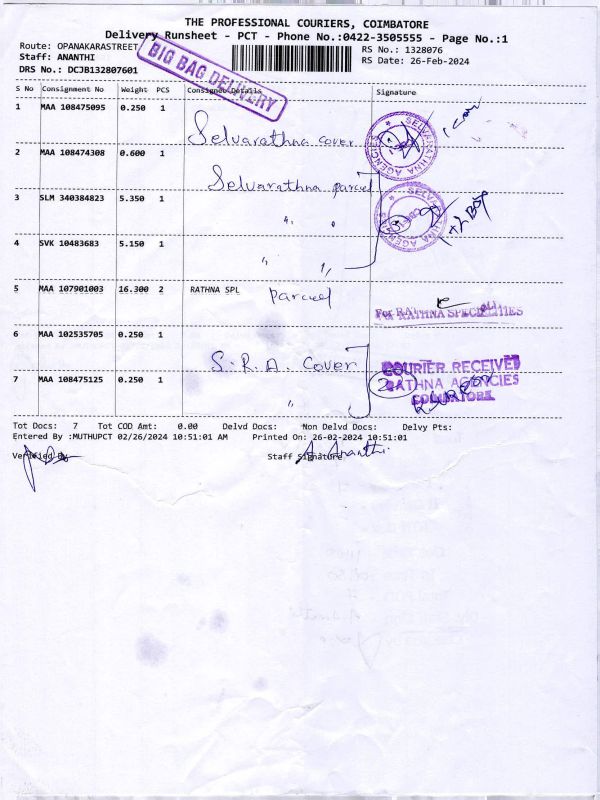 THE PROFESSIONAL COURIERS, COIMBATORE
Delivery Runsheet - PCT - Phone No.:0422-3505555 - Page No.:1
Route: OPANAKARASTREET
RS No.: 1328076
Staff: ANANTHI
RS Date: 26-Feb-2024
DRS No.: DCJB132807601
BIG BAG DELIVERY
S No Consignment No Weight PCS Consignee Details Signature
1 MAA 108475095 0.250 1
Selvarathna cover
SELVARATHNA AGENCIES
2 MAA 108474308 0.600 1
Selvarathna parcel
3 SLM 340384823 5.350 1
" "
SELVARATHNA AGENCIES
4 SVK 10483683 5.150 1
" "
5 MAA 107901003 16.300 2 RATHNA SPL Parcel
For RATHNA SPECIALITIES
6 MAA 102535705 0.250 1
S.R.A. Cover
COURIER RECEIVED
7 MAA 108475125 0.250 1
"
RATHNA AGENCIES
COIMBATORE
Tot Docs: 7 Tot COD Amt: 0.00 Delvd Docs: Non Delvd Docs: Delvy Pts:
Entered By :MUTHUPCT 02/26/2024 10:51:01 AM Printed On: 26-02-2024 10:51:01
Verified By Staff Signature
A. Ananthi